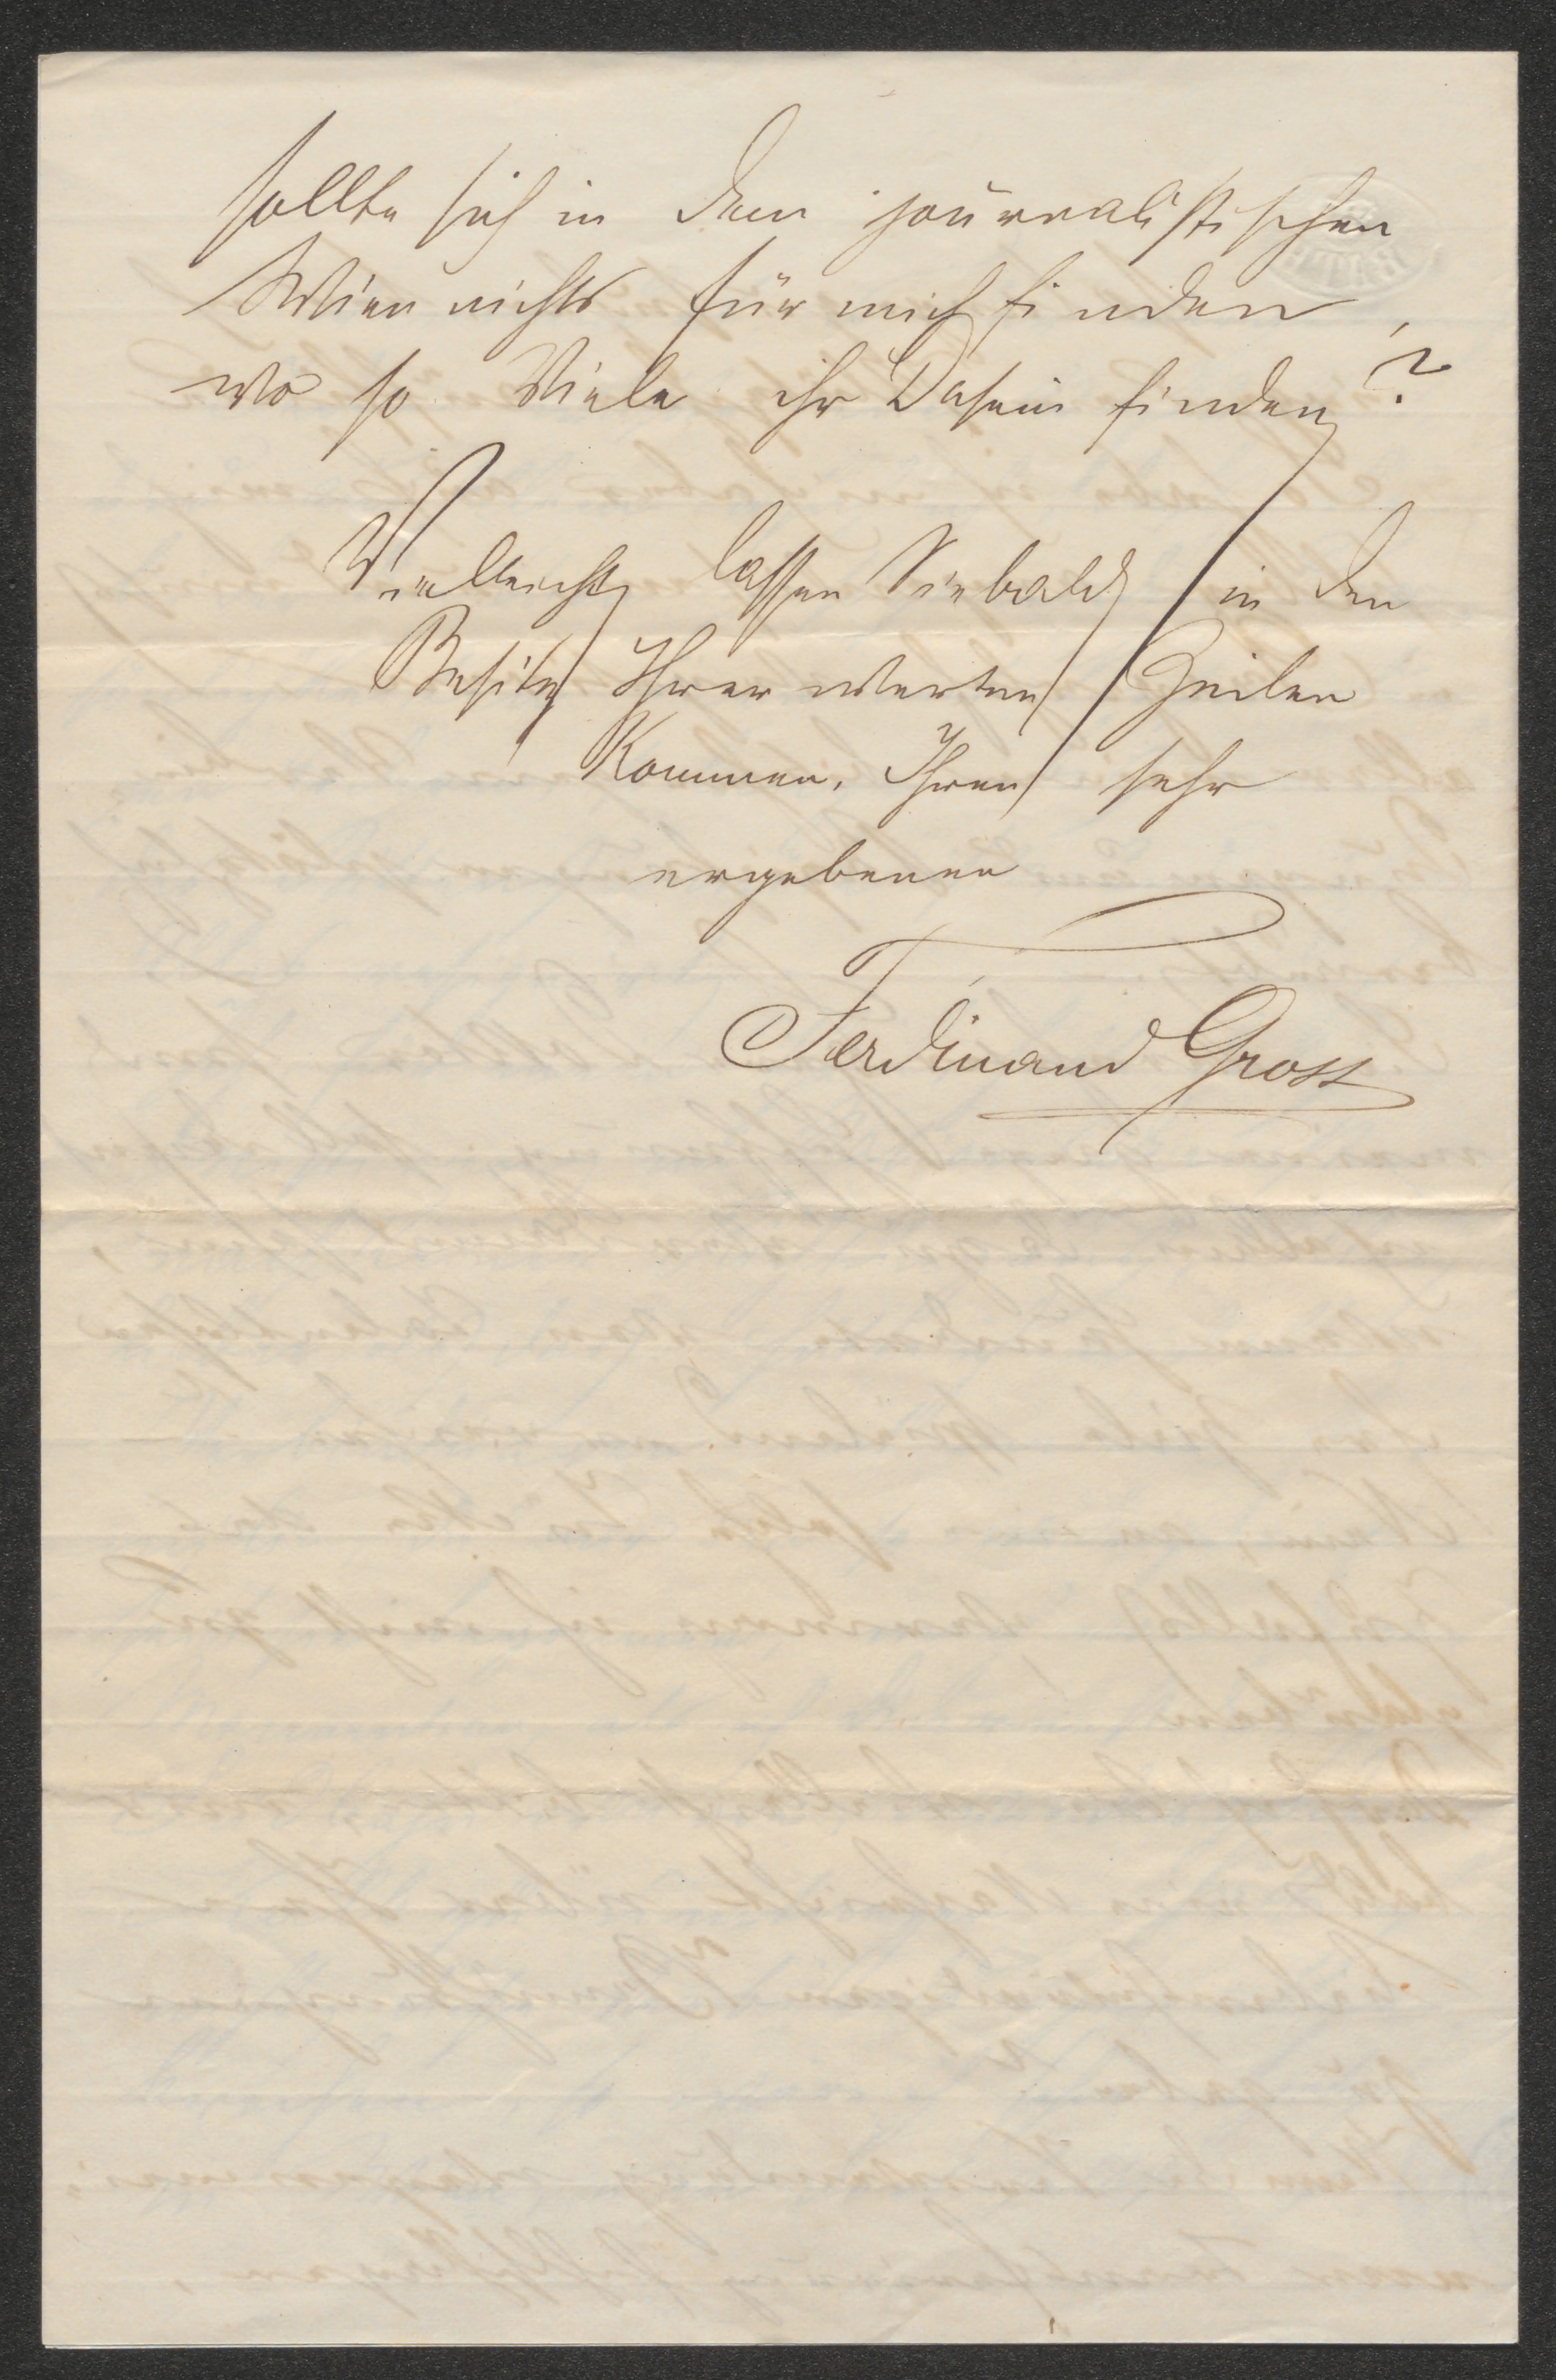 sollte sich in dem journalistischen
Wien nichts für mich finden,
wo so Viele ihr Dasein finden?
Vielleicht lassen Sie bald in den
Besitz Ihrer werten Zeilen
kommen, Ihren sehr
ergebenen
Ferdinand Gross